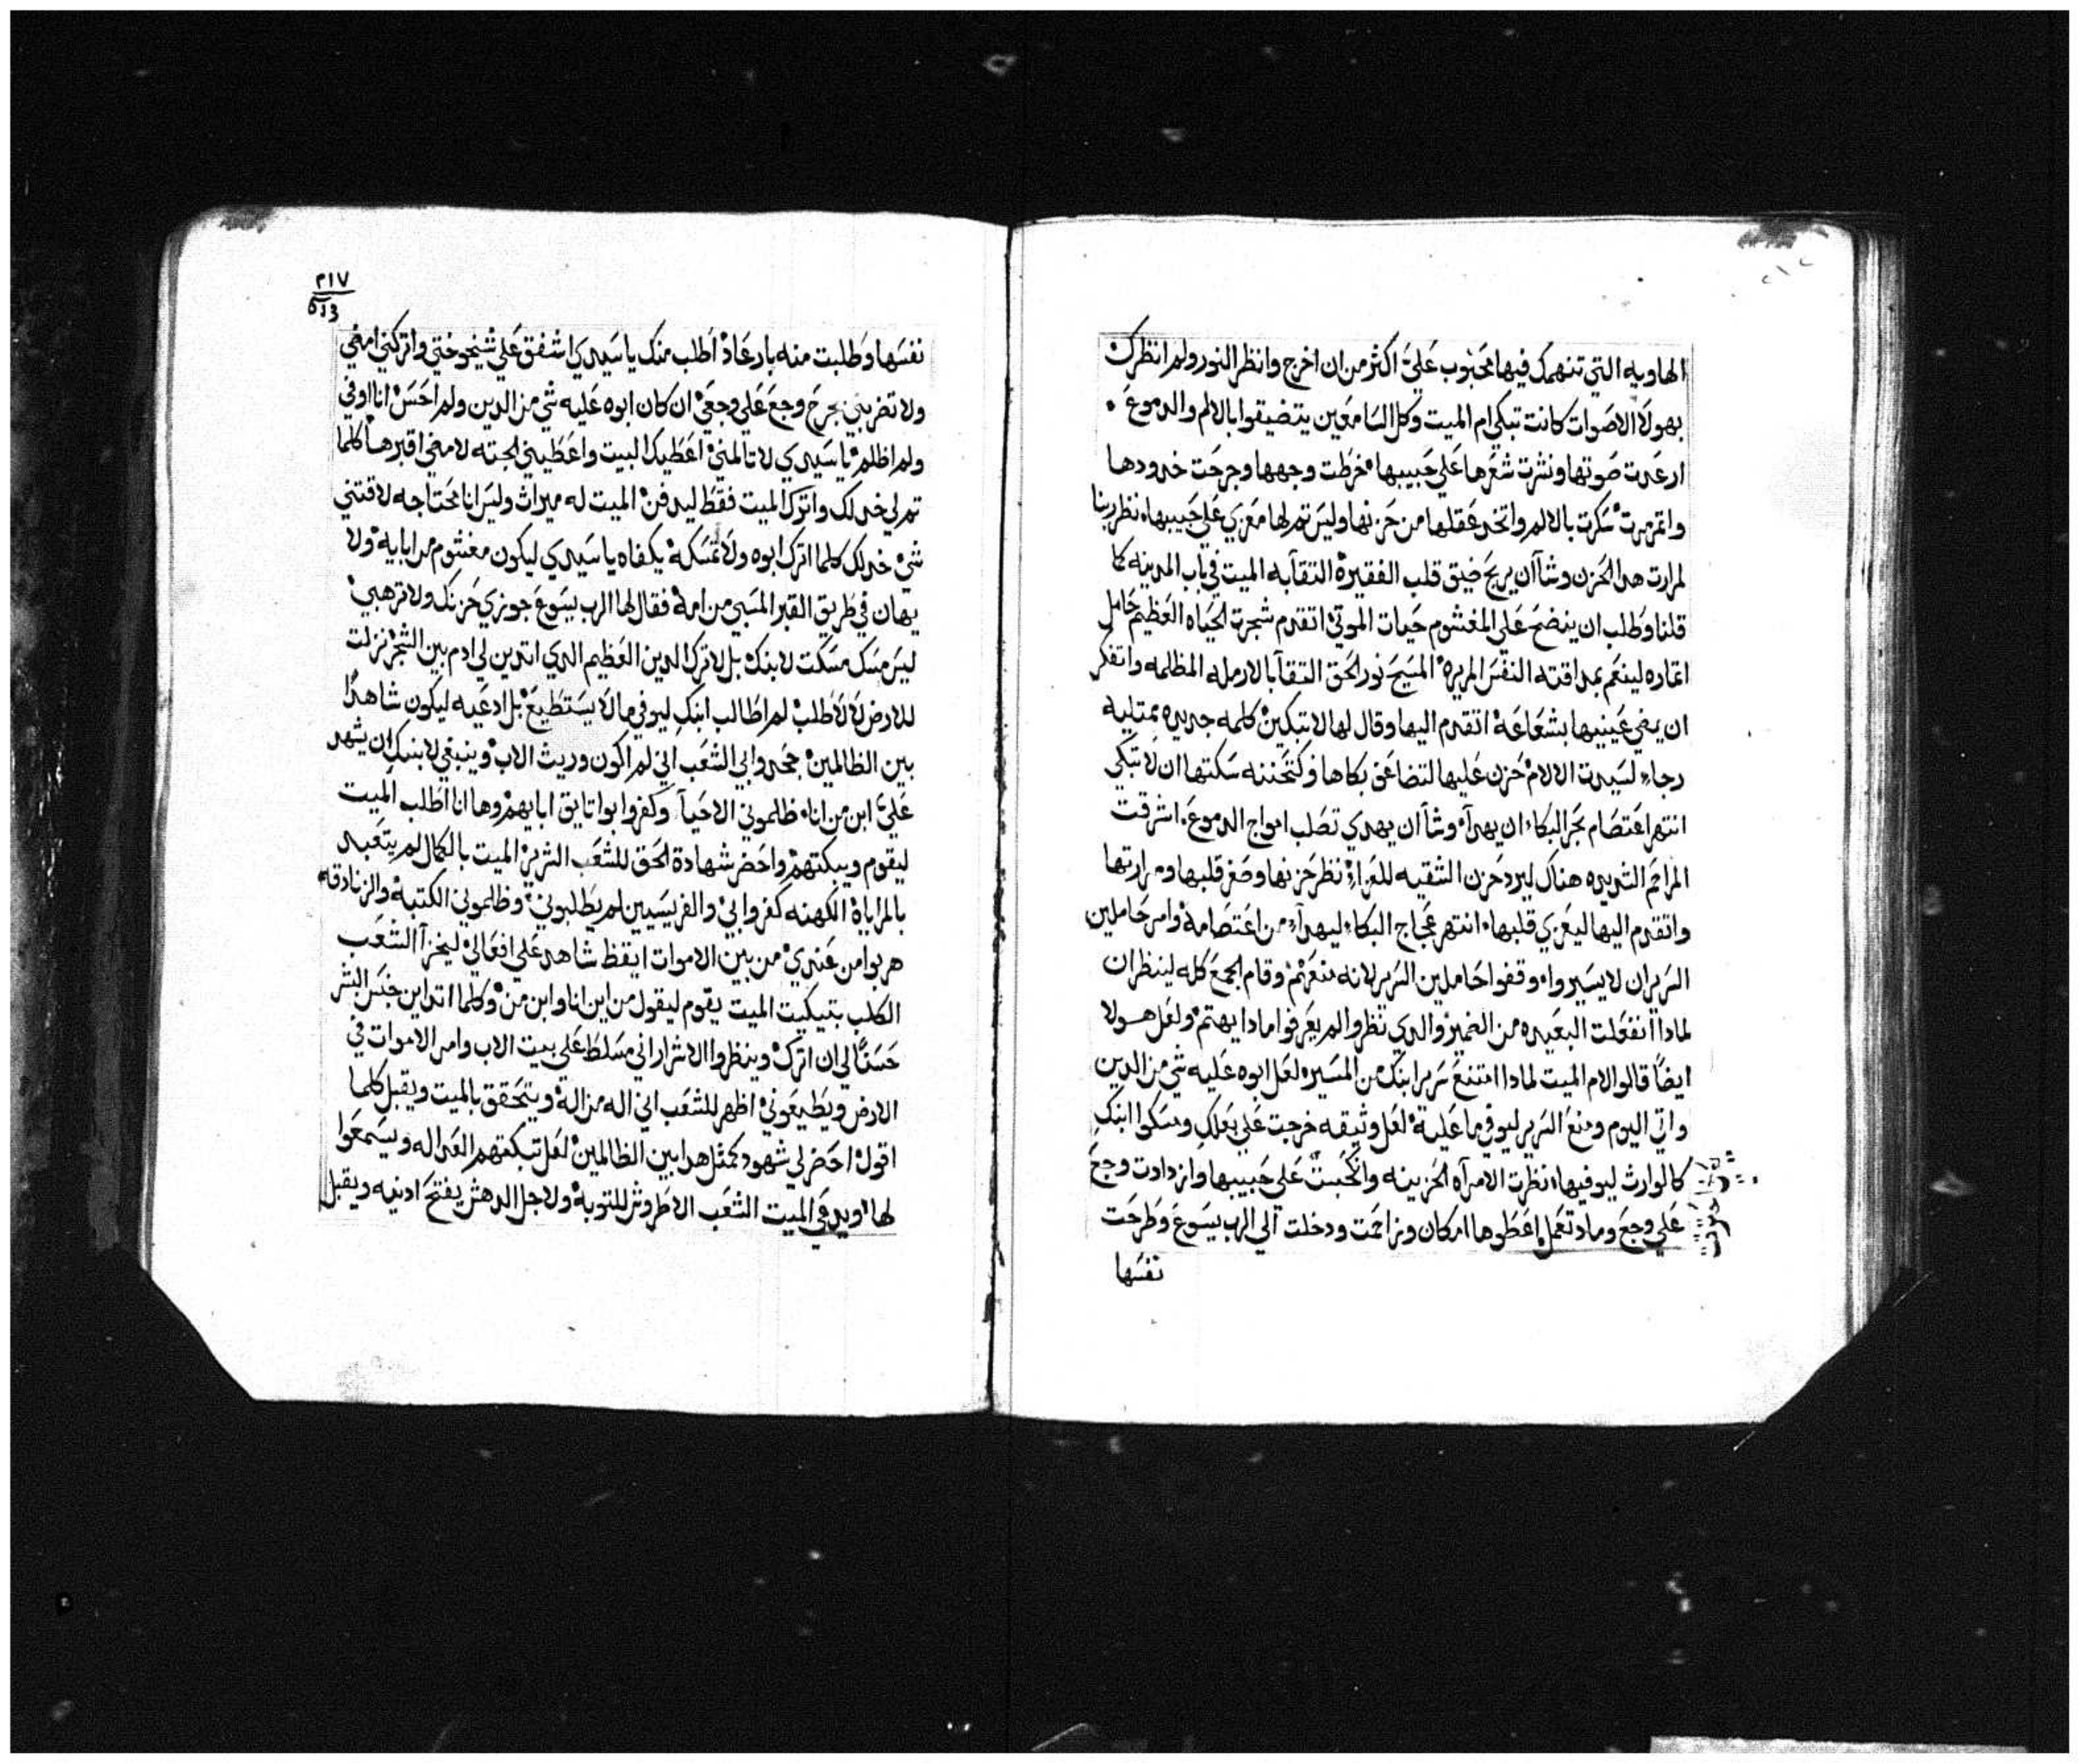 الهاويه التي تنهمك فيها محبوب عليَّ اكثر من ان اخرج وانظر النور ولم انظرك
بهولا الاصوات كانت تبكي ام الميت وكل السامعين يتضيقوا بالالم والدموع
ارعدت صوتها ونشرت شعرها علي حبيبها خرطت وجهها وجرحت خدودها
واتمرمرت سكرت بالالم واتخد عقلها من حزنها وليس تم لها معزي علي حبيبها نظر ربنا
لمرارت هدا الحزن وشاان يريح ضيق قلب الفقيرة التقابه الميت في باب المدينه كما
قلنا وطلب ان ينضح علي المغشوم حيات الموتي اتقدم شجرت الحياه العظيم حامل
اتماره لينعم بمداقته النفس المريره المسيح نور الحق التقا بالارمله المظلمه واتفكر
ان يضي عينيها بشعاعة اتقدم اليها وقال لها لا تبكين كلمه جديده ممتليه
رجاء لسيدت الالام حزن عليها لتضاعف بكاها وكتحننه سكتها ان لا تبكي
انتهر اعتصام بحر البكاء ان يهدأ وشاان يهدي تصلب امواج الدموع اشرقت
المراحم الشديده هناك ليرد حزن الشقيه للعزاء نظر حزنها وصغر قلبها ومرارتها
واتقدم اليها ليعزي قلبها انتهر عجاج البكاء ليهدأ من اعتصامه وامر حاملين
السرير ان لا يسيروا ووقفوا حاملين السرير لانه منعهم وقام الجمع كله لينظر ان
لمادا انفعلت البعيده من الضمير والدي نظروا لم يعرفوا مادا يهتم ولعل هولا
ايضاً قالوا لام الميت لمادا امتنع سرير ابنك من المسير لعل ابوه عليه شي من الدين
واتي اليوم ومنع السرير ليوفي ما علية لعل وثيقه خرجت علي بعلك ومسكوا ابنك
كالوارث ليوفيها نظرت الامرآه الحزينه وانكبت علي حبيبها وازدادت وجع
علي وجع وماد تعمل اعطوها امكان وزاحمت ودخلت الي الرب يسوع وطرحت
نفسها
٢١٧
نفسها وطلبت منه بارعاد اطلب منك ياسيدي اشفق علي شيخوختي واتركني امضي
ولا تضربني بجرح وجع علي وجعي ان كان ابوه عليه شي من الدين ولم احس انا اوفي
ولم اظلم ياسيدي لا تالمني اعطيك البيت واعطيني الجته لامضي اقبرها كلما
تم لي خد لك واترك الميت فقط ليدفن الميت له ميراث وليس انا محتاجه لاقتني
شي خد لك كلما اترك ابوه ولا تمسكه يكفاه ياسيدي ليكون مغشوم من ابايه ولا
يهان في طريق القبر المسبي من امة فقال لها الرب يسوع جوزي حزنك ولا ترهبي
ليس مسك مسكت لابنك بل لاترك الدين العظيم الدي اتدين لي ادم بين الشجر نزلت
للارض لا لاطلب لم اطالب ابنك ليوفي ما لا يستطيع بل ادعيه ليكون شاهدًا
بين الظالمين جحدوا بي الشعب اني لم اكون وريث الاب وينبغي لابنك ان يشهد
عليَّ ابن من انا ظلموني الاحيآ وكفروا بواتايق ابايهم وها انا اطلب الميت
ليقوم ويبكتهم واحضر شهادة الحق للشعب الشرير الميت بالكمال لم يتعبد
بالمراياة الكهنه كفروا بي والفريسيين لم يطلبوني وظلموني الكتبة والزنادقه
هربوا من عندي من بين الاموات ايقظ شاهد علي افعالي ليخزا الشعب
الكلب بتبكيت الميت يقوم ليقول من اين انا وابن من وكلما اتداين جنس البشر
حسنًا لي ان اترك وينظروا الاشرار اني مسلط علي بيت الاب وامر الاموات في
الارض ويطيعوني اظهر للشعب اني اله من الة ويتحقق بالميت ويقبل كلما
اقول احضر لي شهود كمثل هدا بين الظالمين لعل تبكتهم العداله ويسمعوا
لها ويدعي الميت الشعب الاطروش للتوبة ولاجل الدهش يفتح ادنيه ويقبل